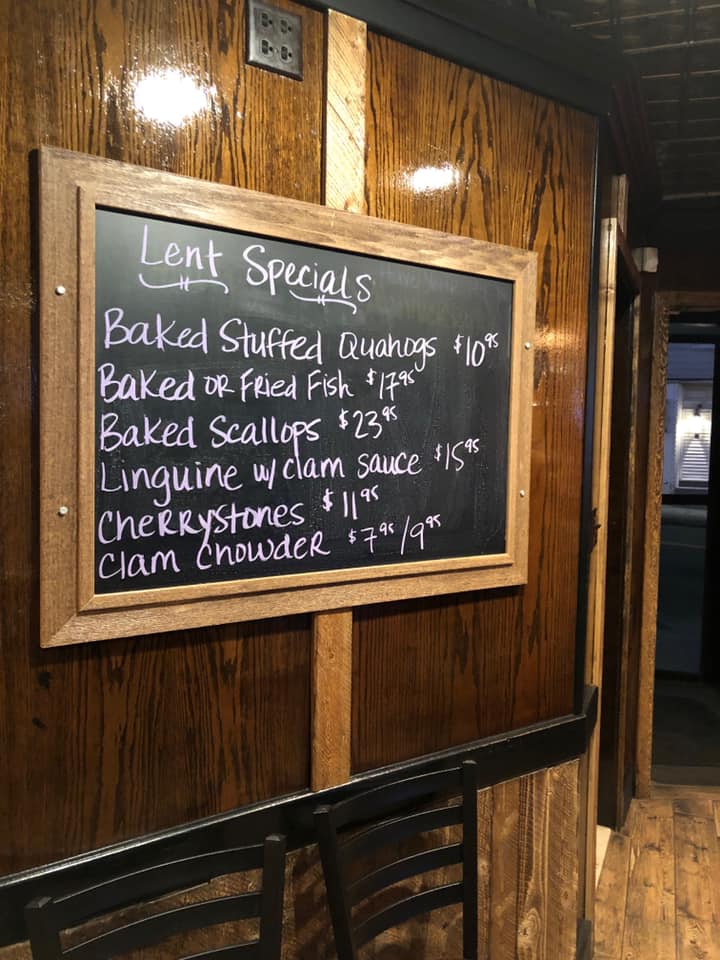 Lent Specials
Baked Stuffed Quahogs $10.95
Baked OR Fried Fish $17.95
Baked Scallops $23.95
Linguine w/ clam sauce $15.95
Cherrystones $11.95
Clam Chowder $7.95/9.95